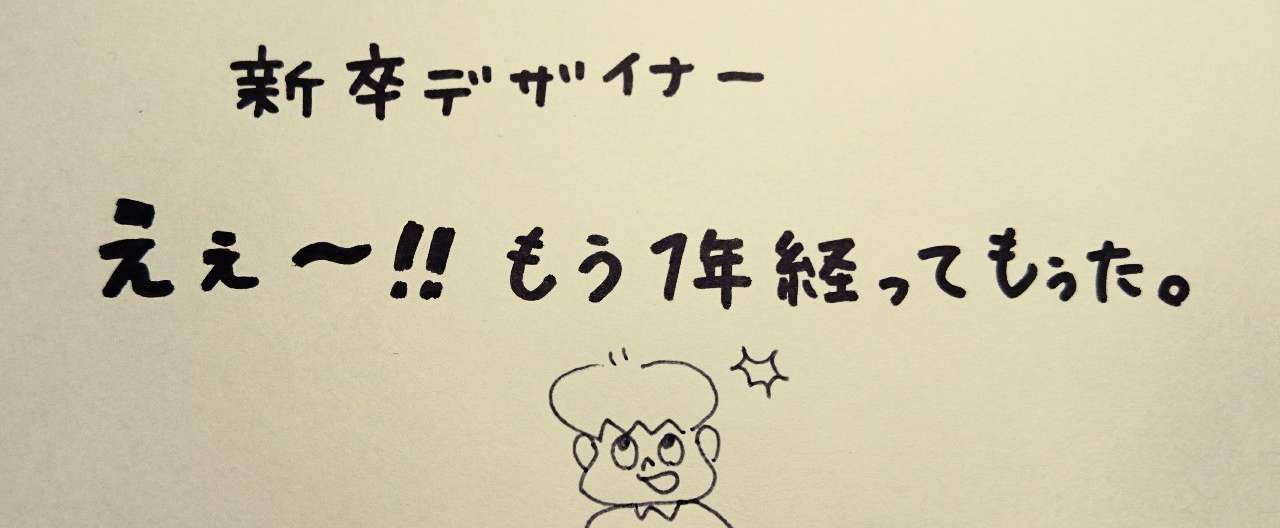 新卒デザイナー
えぇ〜!! もう1年経ってもぅた。